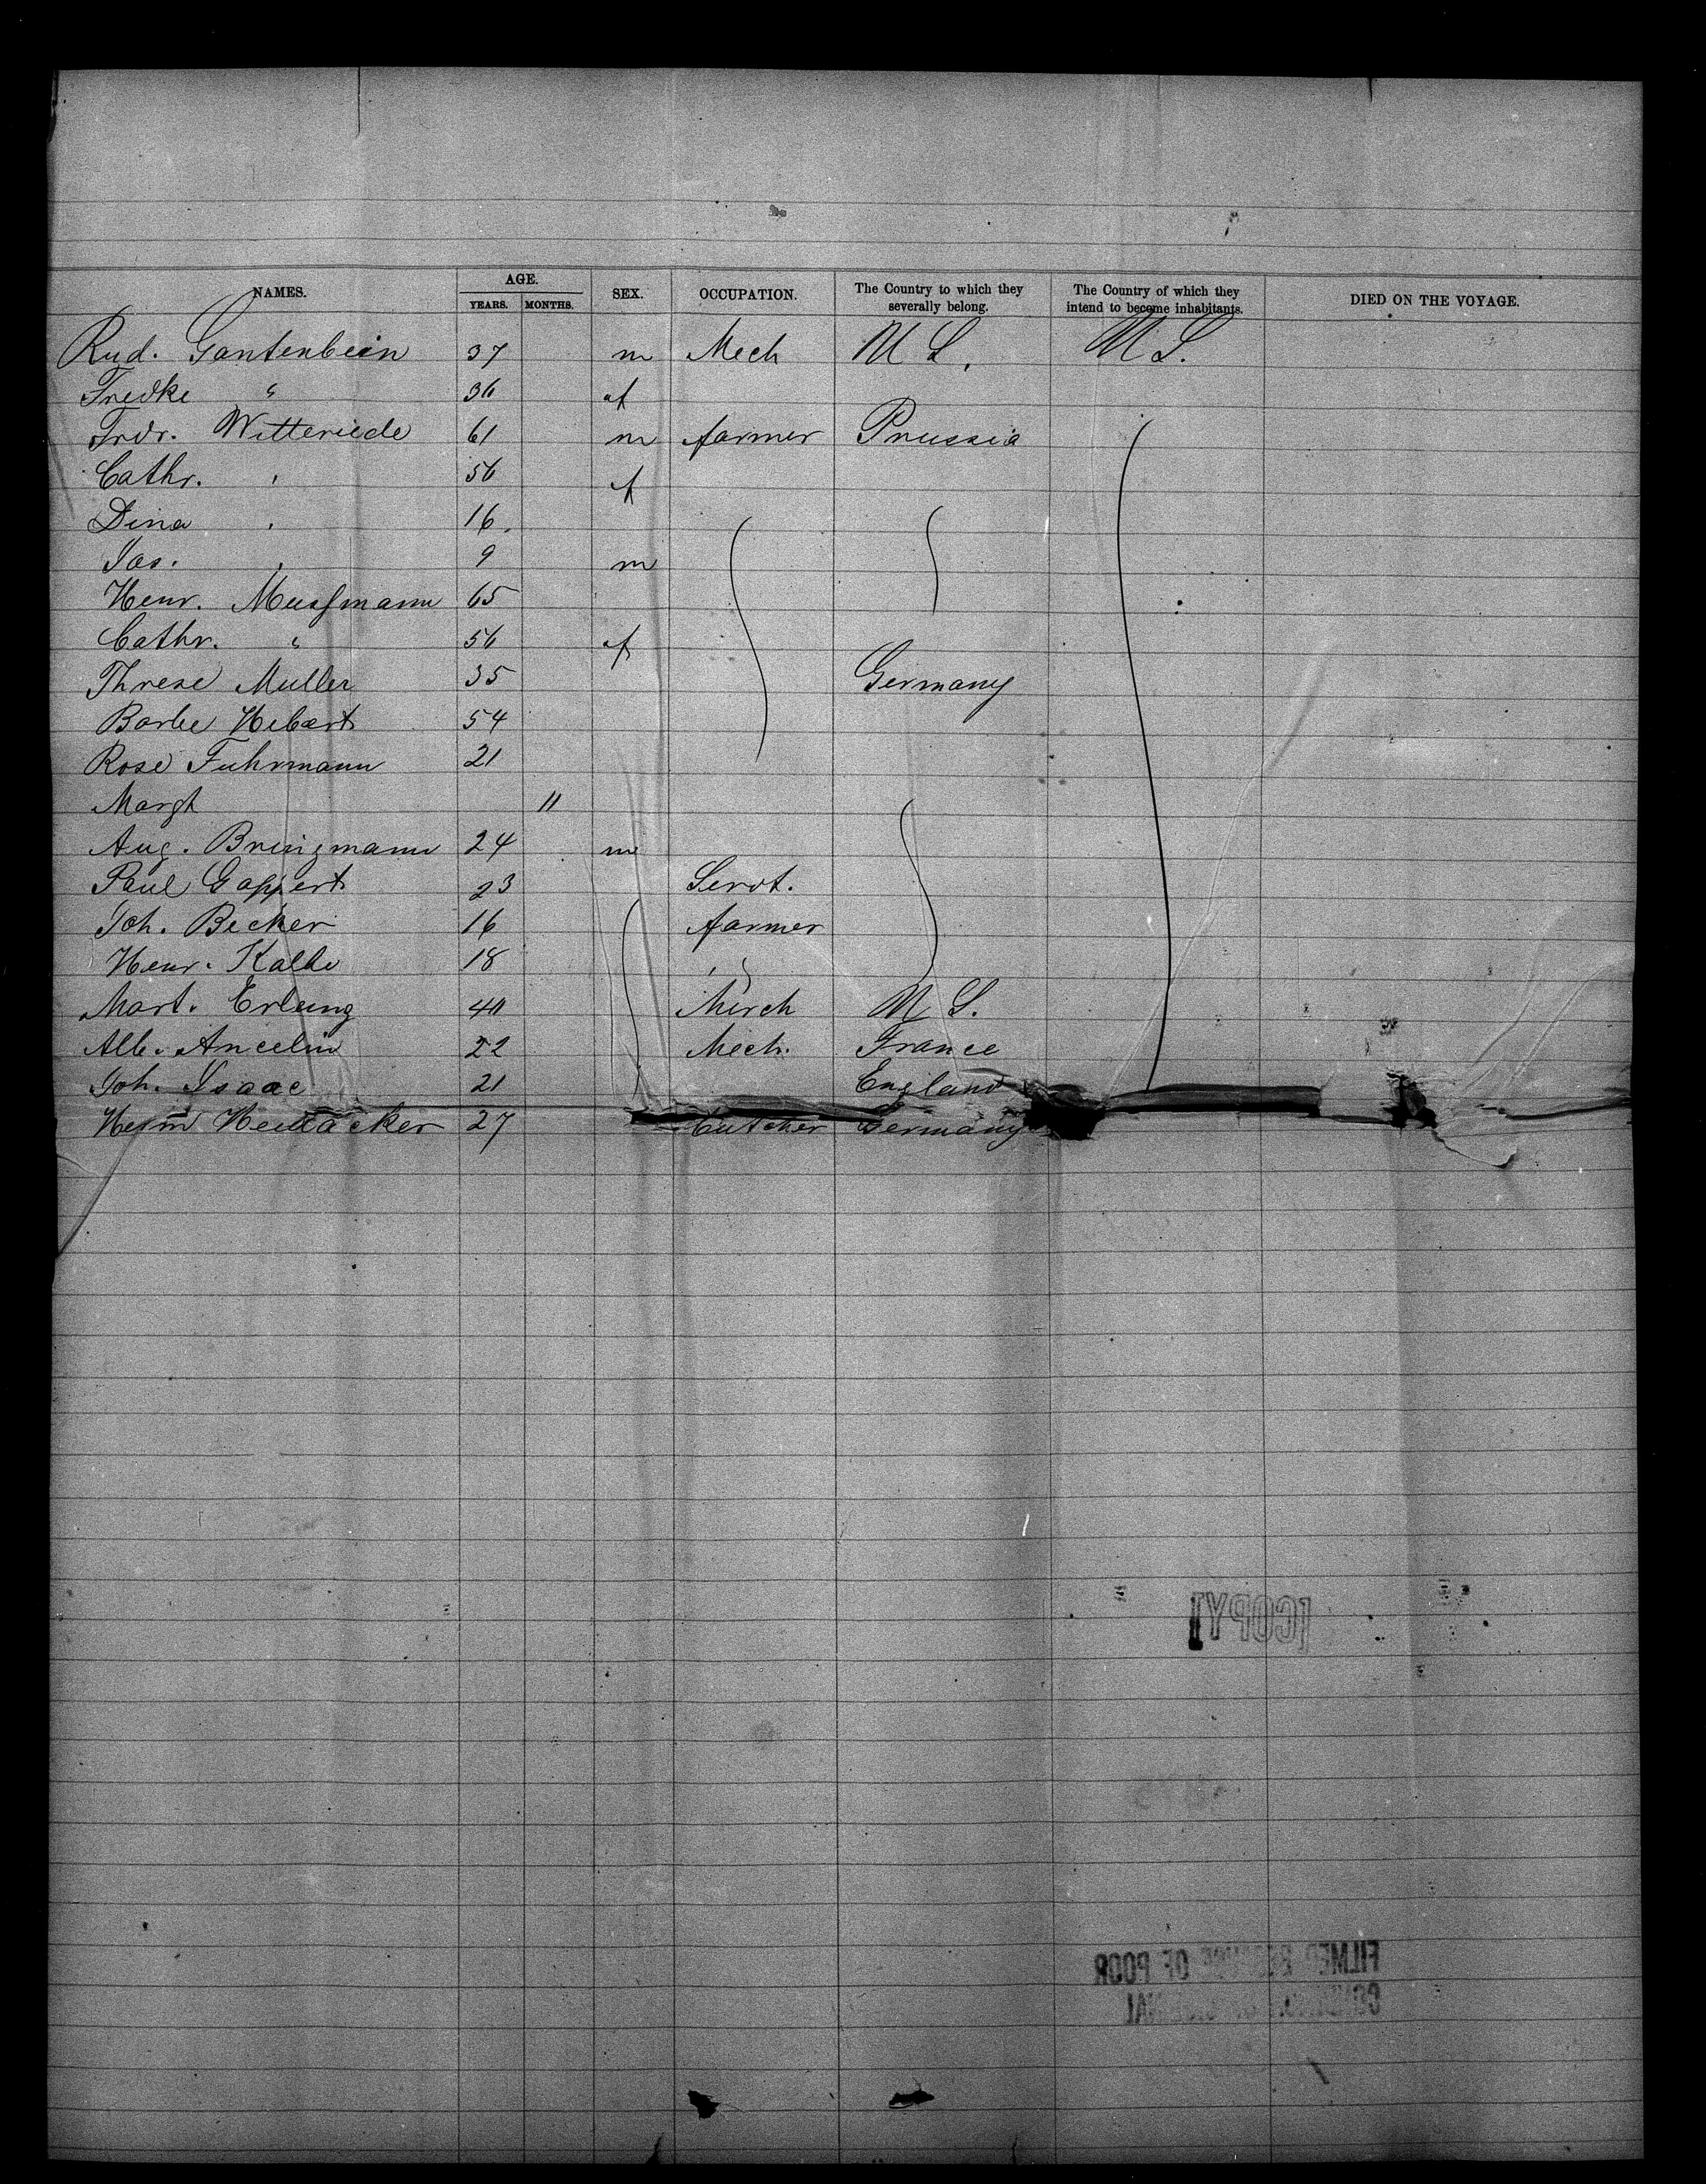 NAMES. AGE. YEARS. MONTHS. SEX. OCCUPATION. The Country to which they severally belong. The Country of which they intend to become inhabitants. DIED ON THE VOYAGE.
Rud. Gantenbein 37 m Mech U S. U S.
Fredke " 36 f
Frdr. Witteriede 61 m farmer Prussia
Cathr. " 56 f
Dina " 16
Jas. " 9 m
Henr. Mussmann 65
Cathr. " 56 f
Threse Muller 35 Germany
Barbe Hebert 54
Rose Fuhrmann 21
Margh 11
Aug. Bringmann 24 m
Paul Gappert 23 Servt.
Joh. Becker 16 farmer
Henr. Kalbe 18 " "
Mart. Erlung 40 Merch U S.
Alb. Ancelin 22 Mech. France
Joh. Isaac 21 England
Herm 27 Butcher Germany
[COPY]
FILMED BECAUSE OF POOR
CONDITION OF ORIGINAL